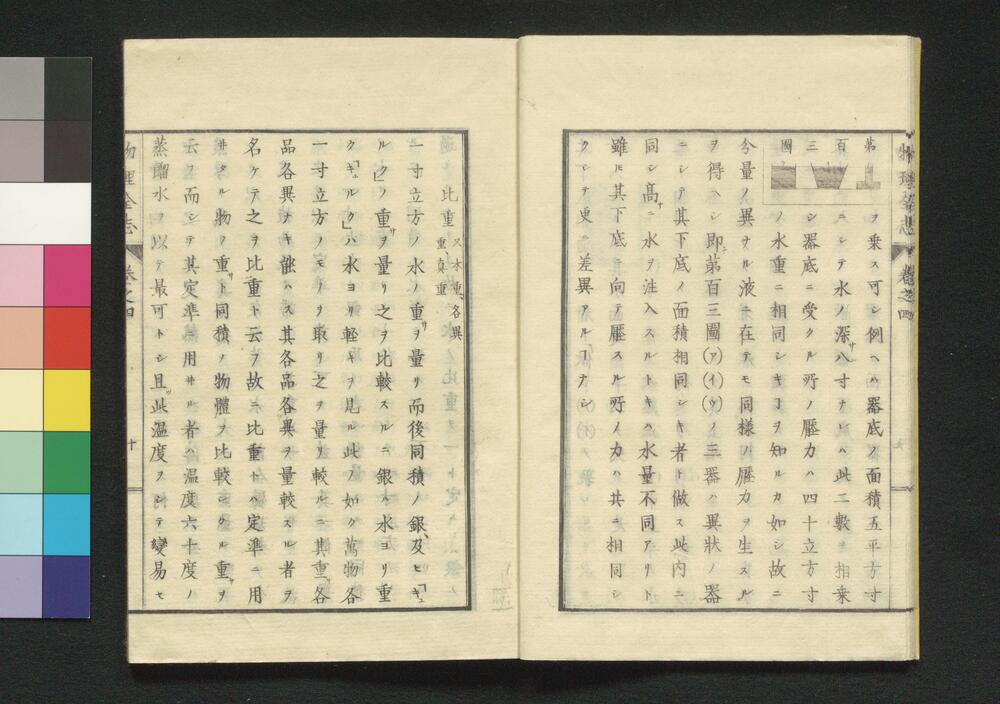 物理全志 巻之四
ヲ乗ス可シ例ヘハ器底ノ面積五平方寸
第百三圖
ニシテ水ノ深サ八寸ナレハ此二數ヲ相乗
シ器底ニ受クル所ノ壓力ハ四十立方寸
ノ水重ニ相同シキヿヲ知ルカ如シ故ニ
今量ノ異ナル液ニ在テモ同様ノ壓力ヲ生スル
ヲ得ヘシ即チ第百三圖(ア)(イ)(ウ)ノ三器ハ異狀ノ器
ニシテ其下底ノ面積相同シキ者ト做ス此内ニ
同シ髙サニ水ヲ注入スルトキハ水量不同アリト
雖ㇳモ其下底ニ向テ壓スル所ノ力ハ共ニ相同シ
クシテ更ニ差異アルヿナシ
比重 又本重各異重真重
一寸立方ノ水ノ重サヲ量リ而後同積ノ銀、及ヒ「キュ
ルク」ノ重サヲ量リ之ヲ比較スルニ銀ハ水ヨリ重
ク「キュルク」ハ水ヨリ軽キヲ見ル此ノ如ク萬物各
一寸立方ノモノヲ取リ之ヲ量リ較ルニ其重サ各
品各異ナキ能ハス其各品各異ヲ量較スル者ヲ
名ケテ之ヲ比重ト云フ故ニ比重トハ定準ニ用
井タル物ノ重サト同積ノ物體ヲ比較シタル重サヲ
云フ而シテ其定準ニ用井ル者ハ温度六十度ノ
蒸餾水ヲ以テ最可トシ且ツ此温度ヲシテ變易セ
物理全志 巻之四 十